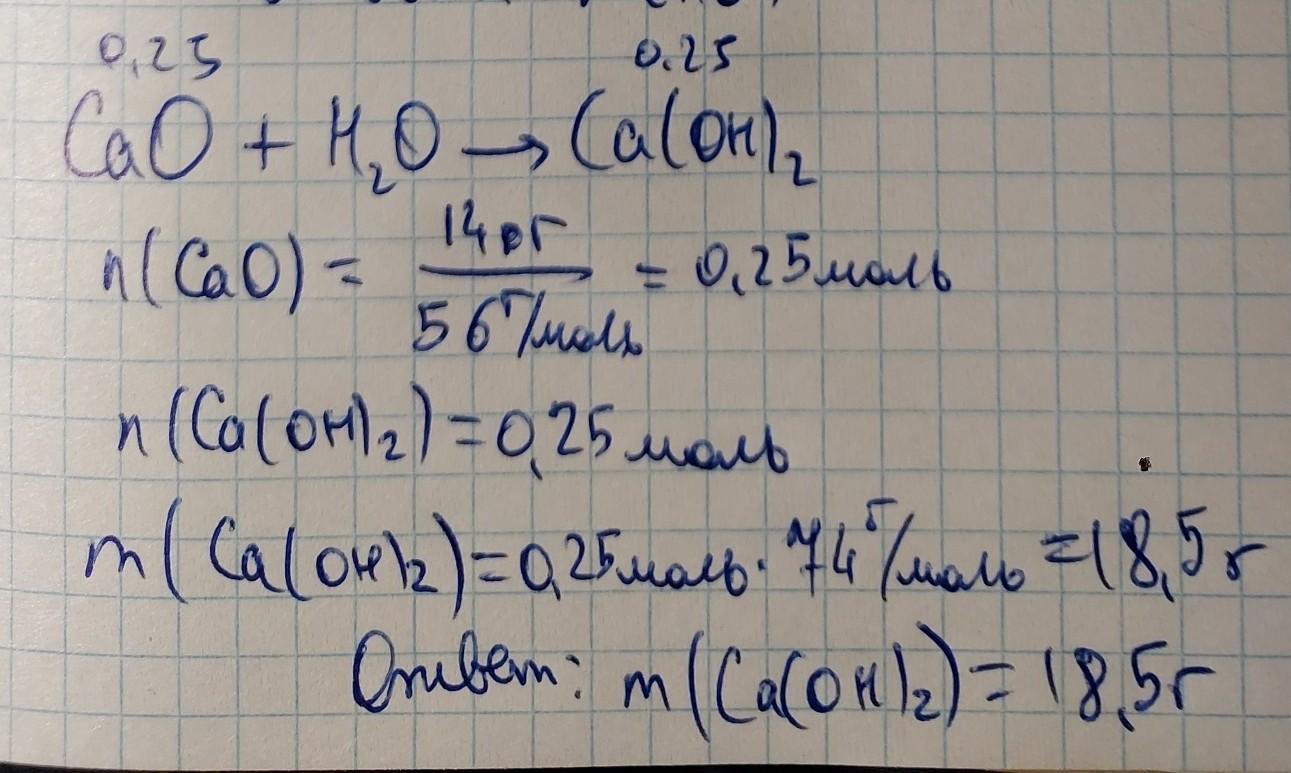 0,25 0.25
CaO + H₂O → Ca(OH)₂
n(CaO) = 14г / 56 г/моль = 0,25 моль
n(Ca(OH)₂) = 0,25 моль
m(Ca(OH)₂) = 0,25 моль · 74 г/моль = 18,5 г
Ответ: m(Ca(OH)₂) = 18,5 г